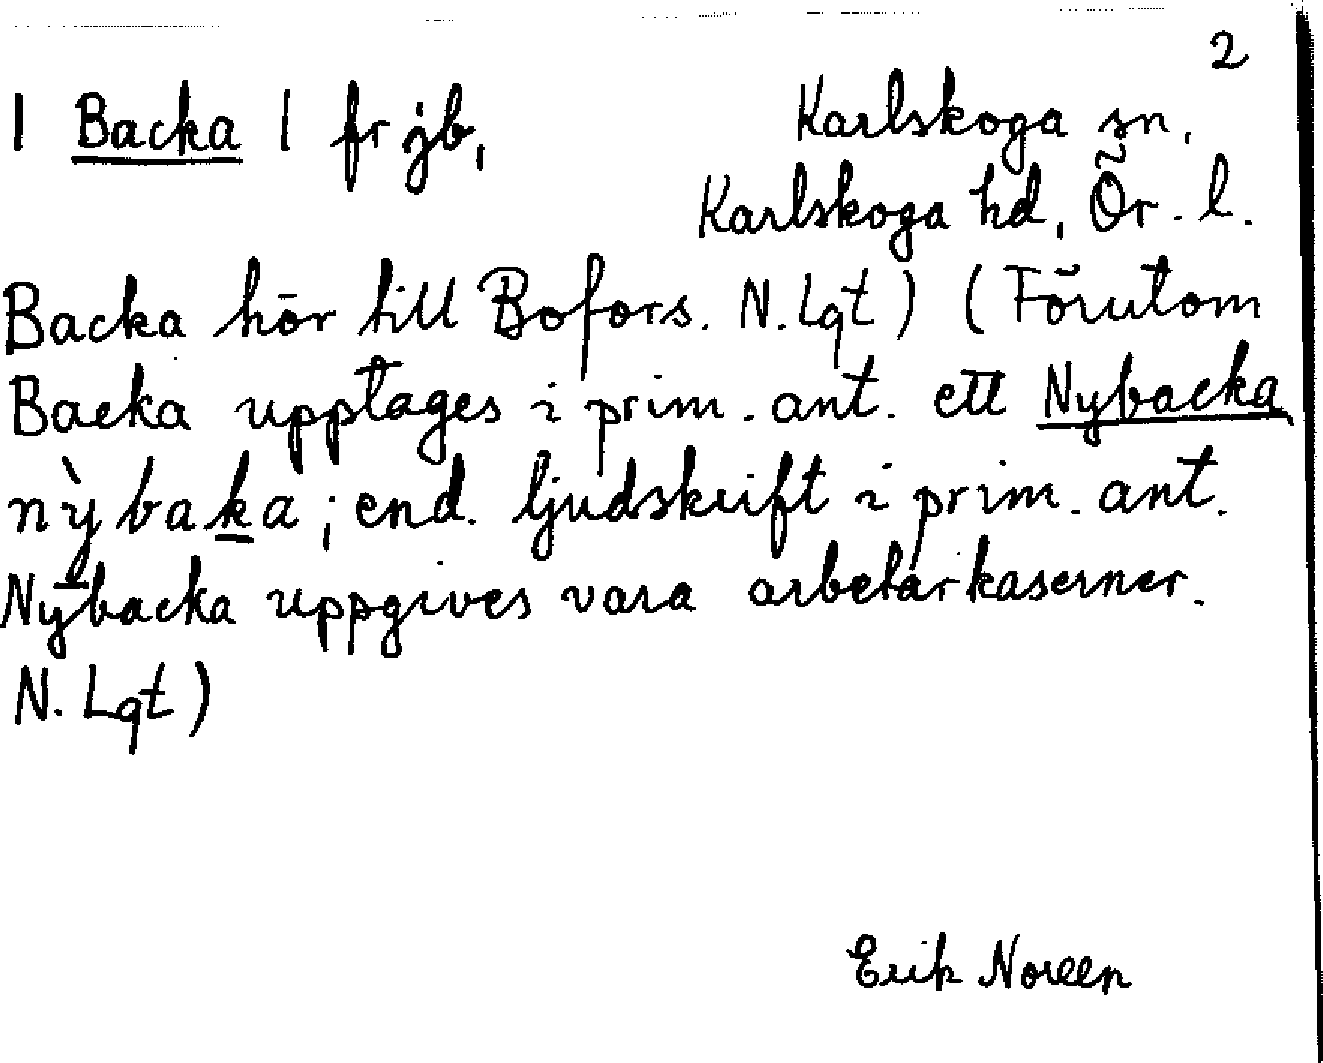 2
| Backa | fr jb,
Karlskoga sn.
Karlskoga hd, Ör. l.
Backa hör till Bofors. N. Lqt) (Förutom
Backa upptages i prim. ant. ett Nybacka
nỳbaka; end. ljudskrift i prim. ant.
Nybacka uppgives vara arbetarkaserner.
N. Lqt)
Erik Noreen